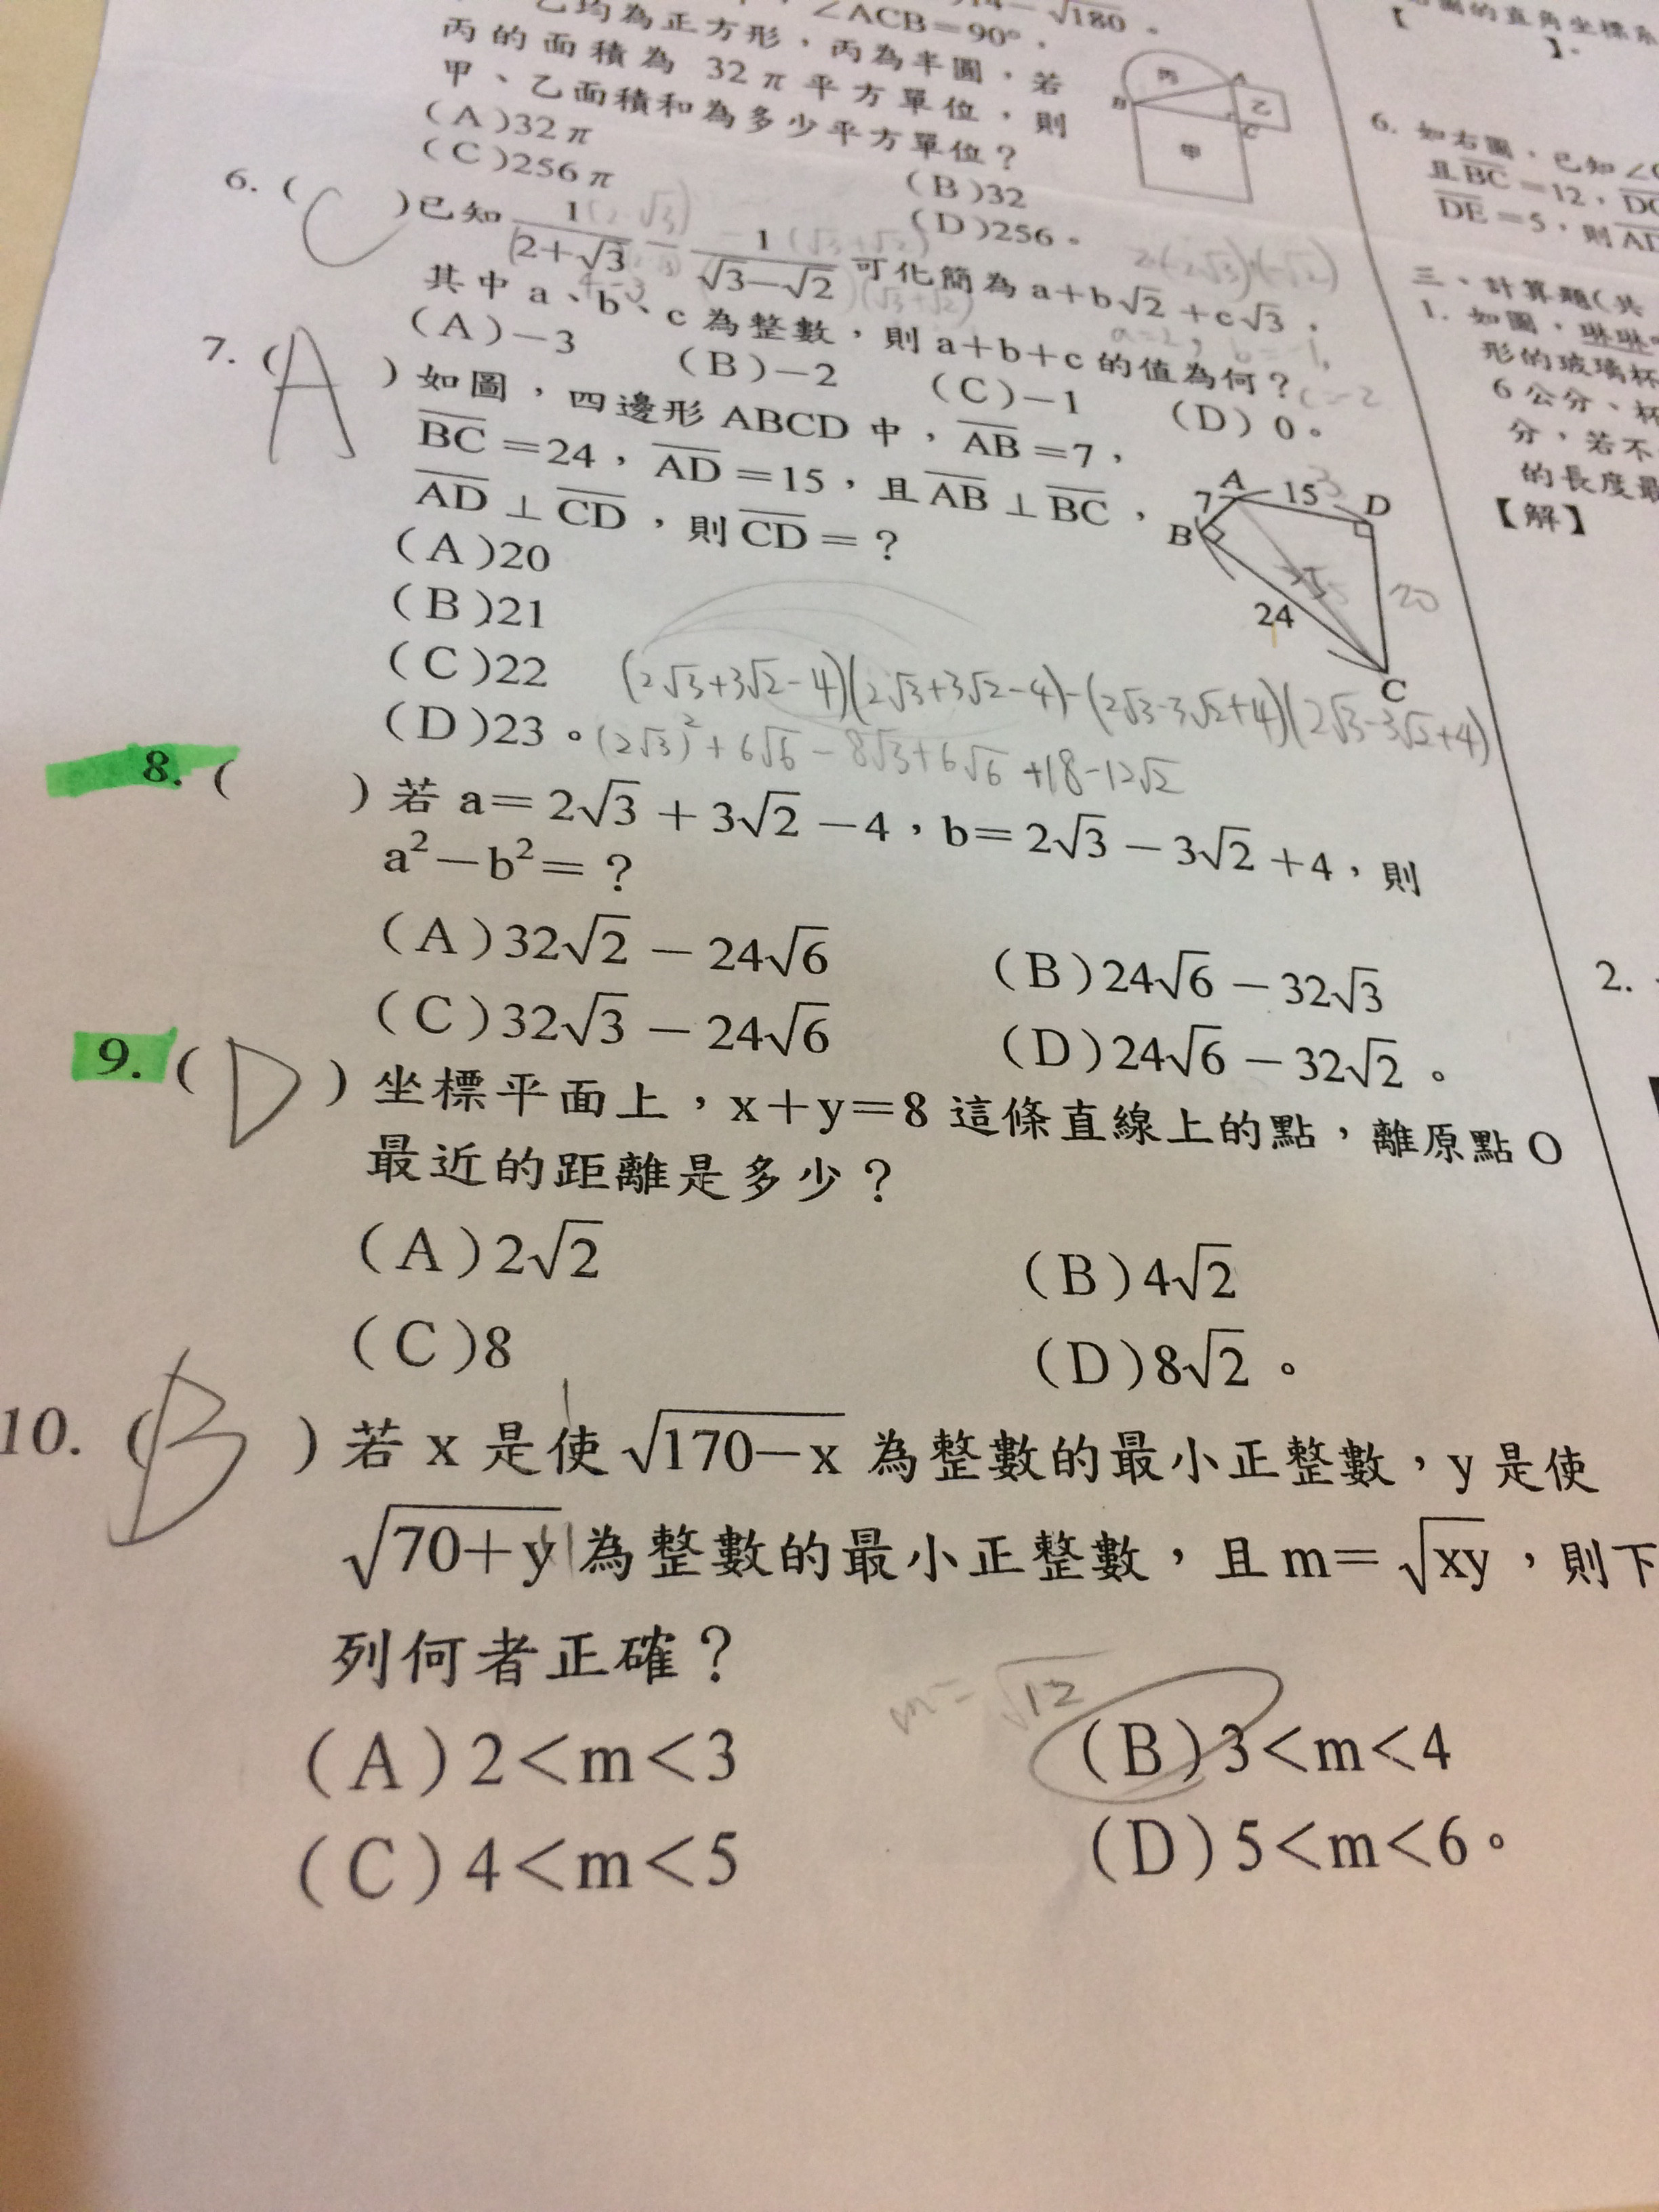 √180。
乙均為正方形，丙為半圓，若
∠ACB=90°，
丙的面積為 32π平方單位，則
甲、乙面積和為多少平方單位？
(A)32π
(B)32
(C)256π
(D)256。
丙
A
B
乙
C
甲
6. ( C )已知 1/(2+√3) − 1/(√3−√2) 可化簡為 a+b√2+c√3，
其中 a、b、c 為整數，則 a+b+c 的值為何？
a=2, b=-1,
c=-2
(A)−3 (B)−2 (C)−1 (D)0。
7. ( A )如圖，四邊形 ABCD 中，AB=7，
BC=24，AD=15，且AB⊥BC，
AD⊥CD，則CD=？
(A)20
(B)21
(C)22
(D)23。
A 15 D
7
B
20
24
C
(2√3+3√2-4)(2√3+3√2-4)-(2√3-3√2+4)(2√3-3√2+4)
(2√3)²+6√6-8√3+6√6+18-12√2
8. ( )若 a=2√3+3√2−4，b=2√3−3√2+4，則
a²−b²=？
(A)32√2−24√6 (B)24√6−32√3
(C)32√3−24√6 (D)24√6−32√2。
9. ( D )坐標平面上，x+y=8 這條直線上的點，離原點 O
最近的距離是多少？
(A)2√2 (B)4√2
(C)8 (D)8√2。
10. ( B )若 x 是使√170−x 為整數的最小正整數，y 是使
√70+y 為整數的最小正整數，且 m=√xy，則下
列何者正確？
m=√12
(A)2<m<3 (B)3<m<4
(C)4<m<5 (D)5<m<6。
的直角坐標系
【
】。
6. 如右圖，已知∠
且BC=12，
DE=5，則
三、計算題(共
1. 如圖，琳琳
形的玻璃杯
6 公分、杯
分，若不
的長度最
【解】
2.